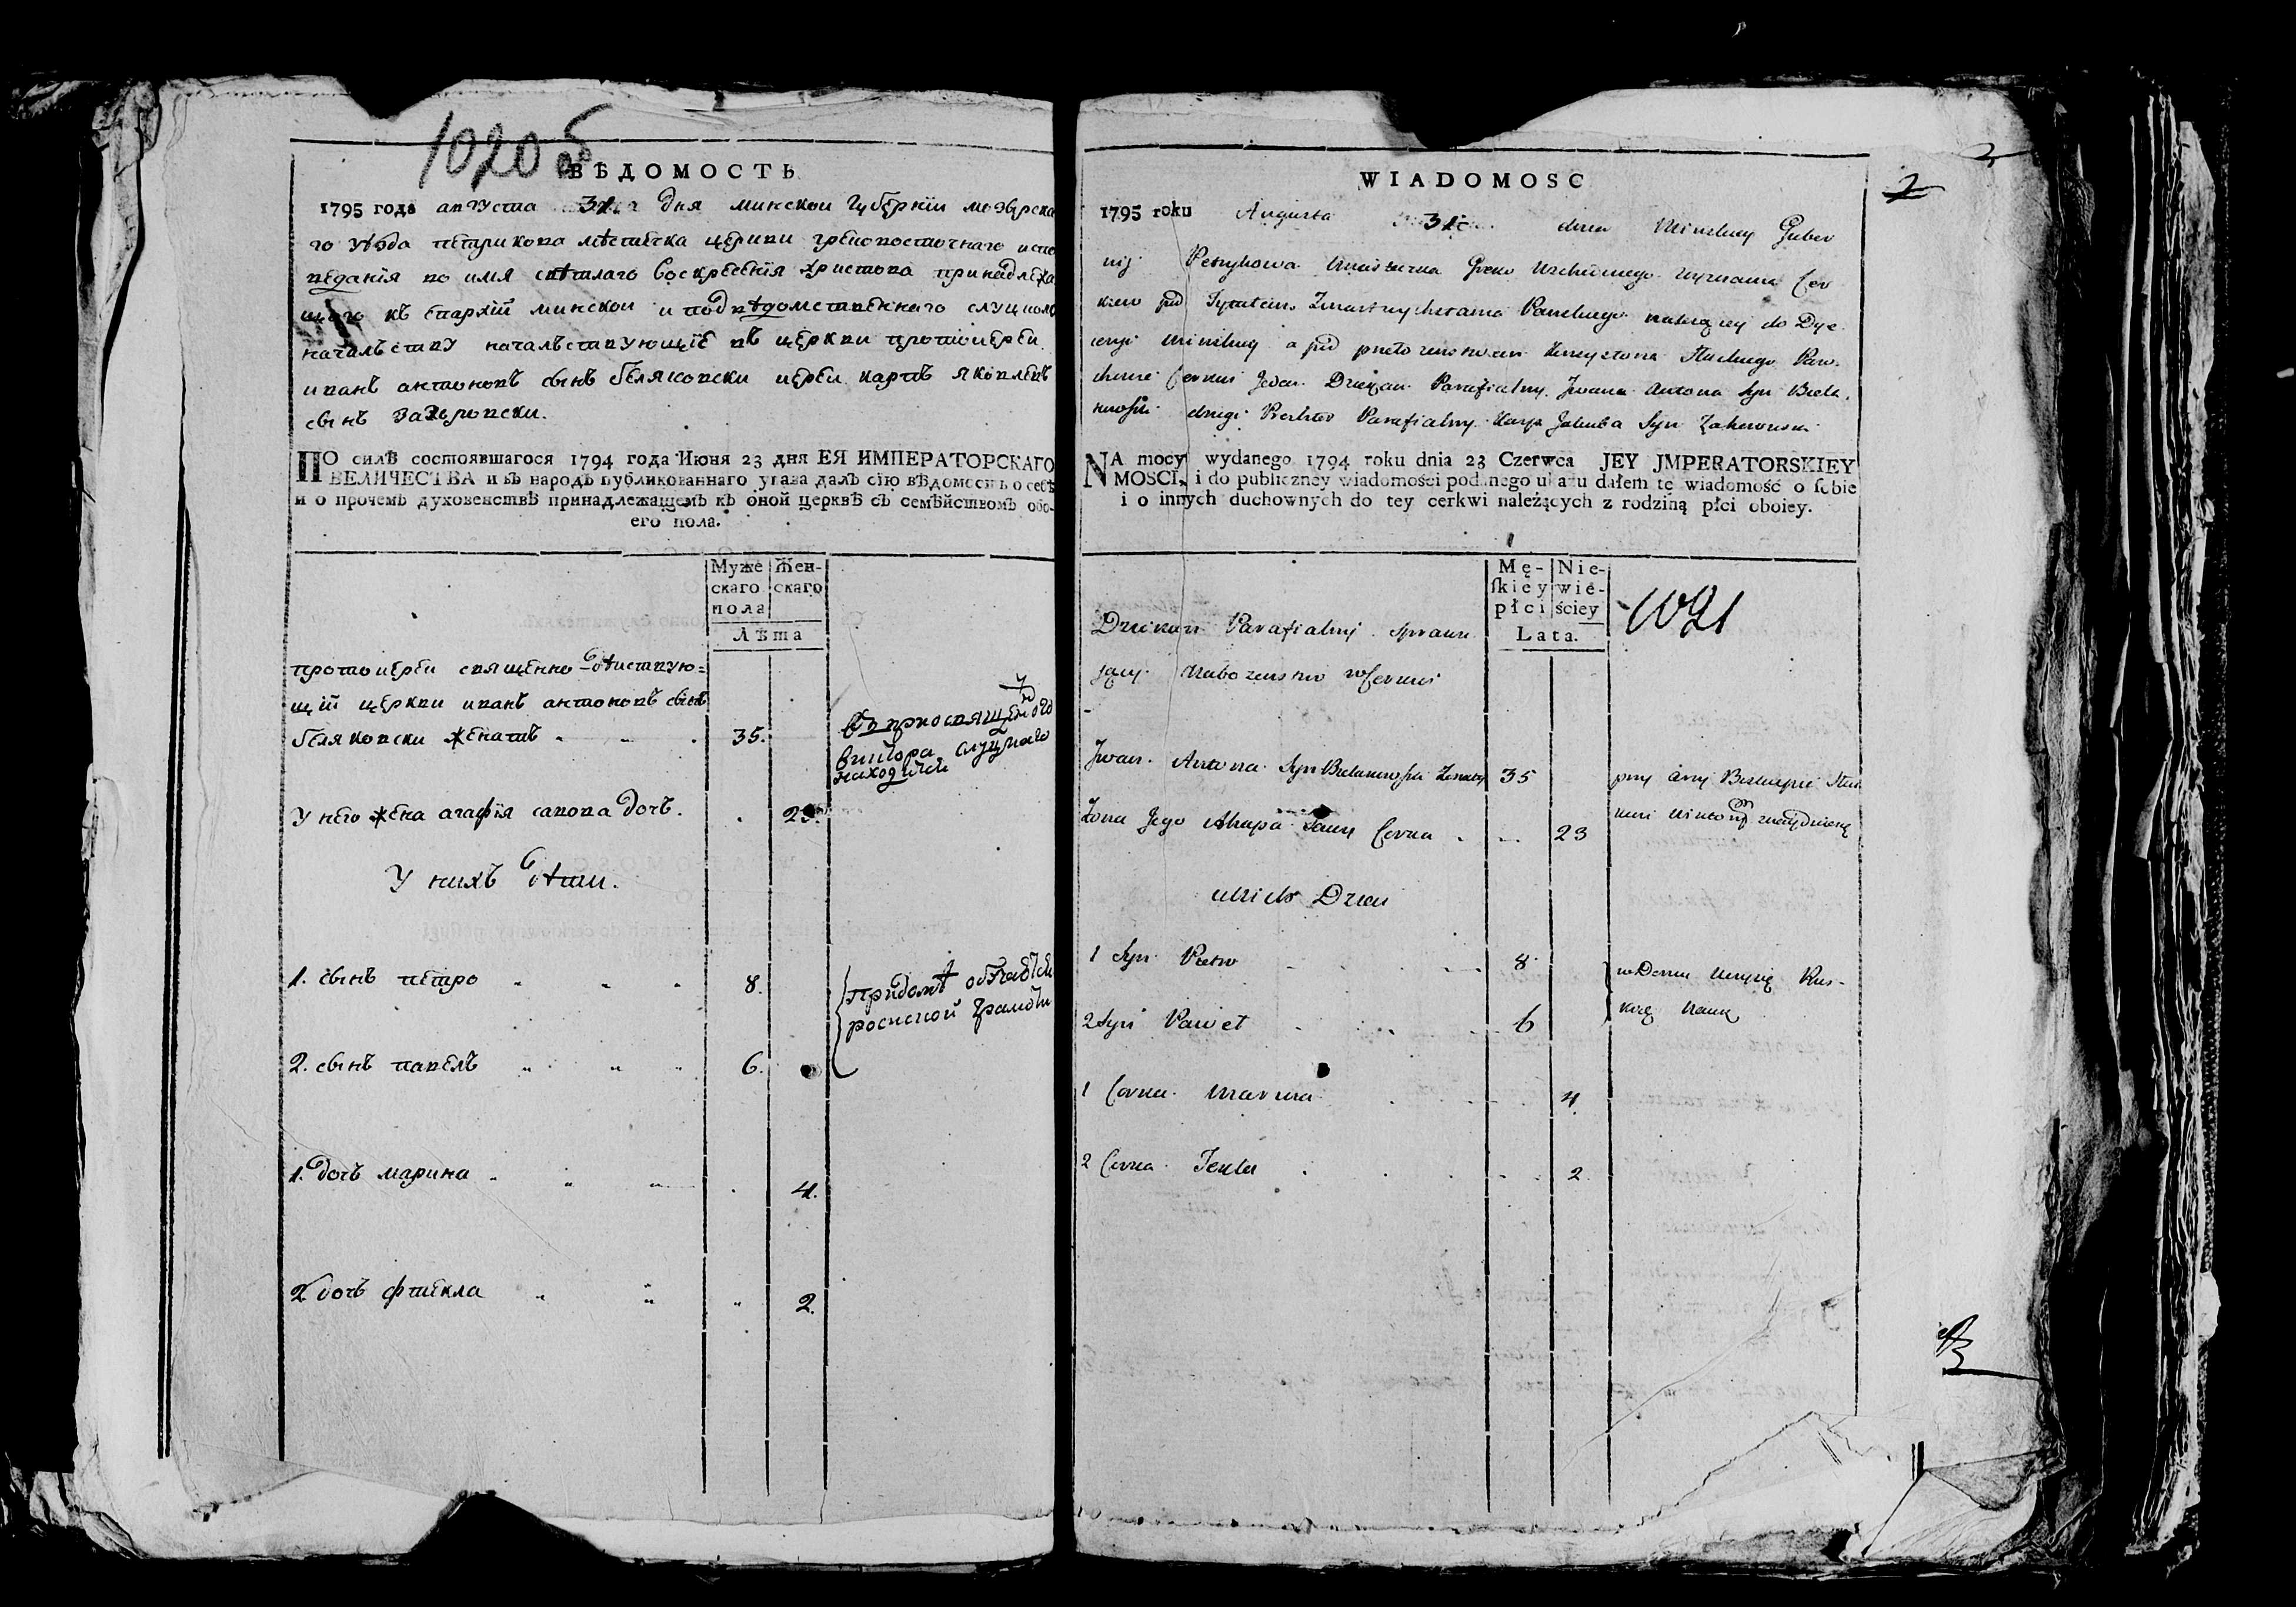 1020 об
ВѢДОМОСТЬ
1795 года августа 31 дня минскои губернїи мозырска
го уѣзда петрикова мѣстечка церкви грековосточнаго испо
веданїя во имя свѣтлаго воскресенїя христова принадлежа
щаго къ епархїй минскои и подвѣдомственнаго слуцкому
начальству начальствующїе въ церкви протоиереи
иванъ антоновъ сынъ беляковски иереи карпъ яковлевъ
сынъ
ПО силѣ состоявшагося 1794 года Июня 23 дня ЕЯ ИМПЕРАТОРСКАГО
ВЕЛИЧЕСТВА и въ народъ публикованнаго указа далъ сїю вѣдомость о себѣ
и о прочемъ духовенствѣ принадлежащемъ къ оной церквѣ съ семѣйствомъ обо-
его пола.
Муже
скаго
пола
Жен-
скаго
Лѣта
протоиереи священно дѣиствую=
щїй церкви иванъ антоновъ сынъ
беляковски женатъ 35.
виктора слуцкаго
находится
У него жена агафїя савова дочь. 23.
У нихъ дѣти.
1. сынъ петро 8.
придомѣ
роснской грамоти
2. сынъ павелъ 6.
1. дочь марина 4.
2 дочь фтекла 2.
WIADOMOSC
2
1795 roku Augusta 31 dnia Minskey Guber
nij Petrykowa Miasteczka Greko Wschodniego wyznania Cer
kiew pod Tytułem Zmartwychwstania Panskiego należącey do Dye
cezyi Minskiey a pod
Cerkwi Jeden Dziekan Parafialny Jwana Antona Syn Biela
kowski drugi Parafialny Karp Jakuba Syn Zakerowski
NA mocy wydanego 1794 roku dnia 23 Czerwca JEY JMPERATORSKIEY
MOSCI, i do publiczney wiadomości podanego ukazu dałem tę wiadomość o sobie
i o innych duchownych do tey cerkwi należących z rodziną płci oboiey.
Mę-
skiey
płci
Nie-
wie-
ściey
Lata.
1021
Dziekan Parafialny sprawu
jący Nabozenstwo w Cerkwi
Jwan Antona Syn Bielakowski Zonaty 35
przy
Zona Jego Ahapa Sawy Corka 23
u Nich Dzieci
1 Syn Pietro 8
w Domu Uczysię Rus-
kiey Nauky
2 Syn Paweł 6
1 Corka Maryna 4
2 Corka Tekla 2